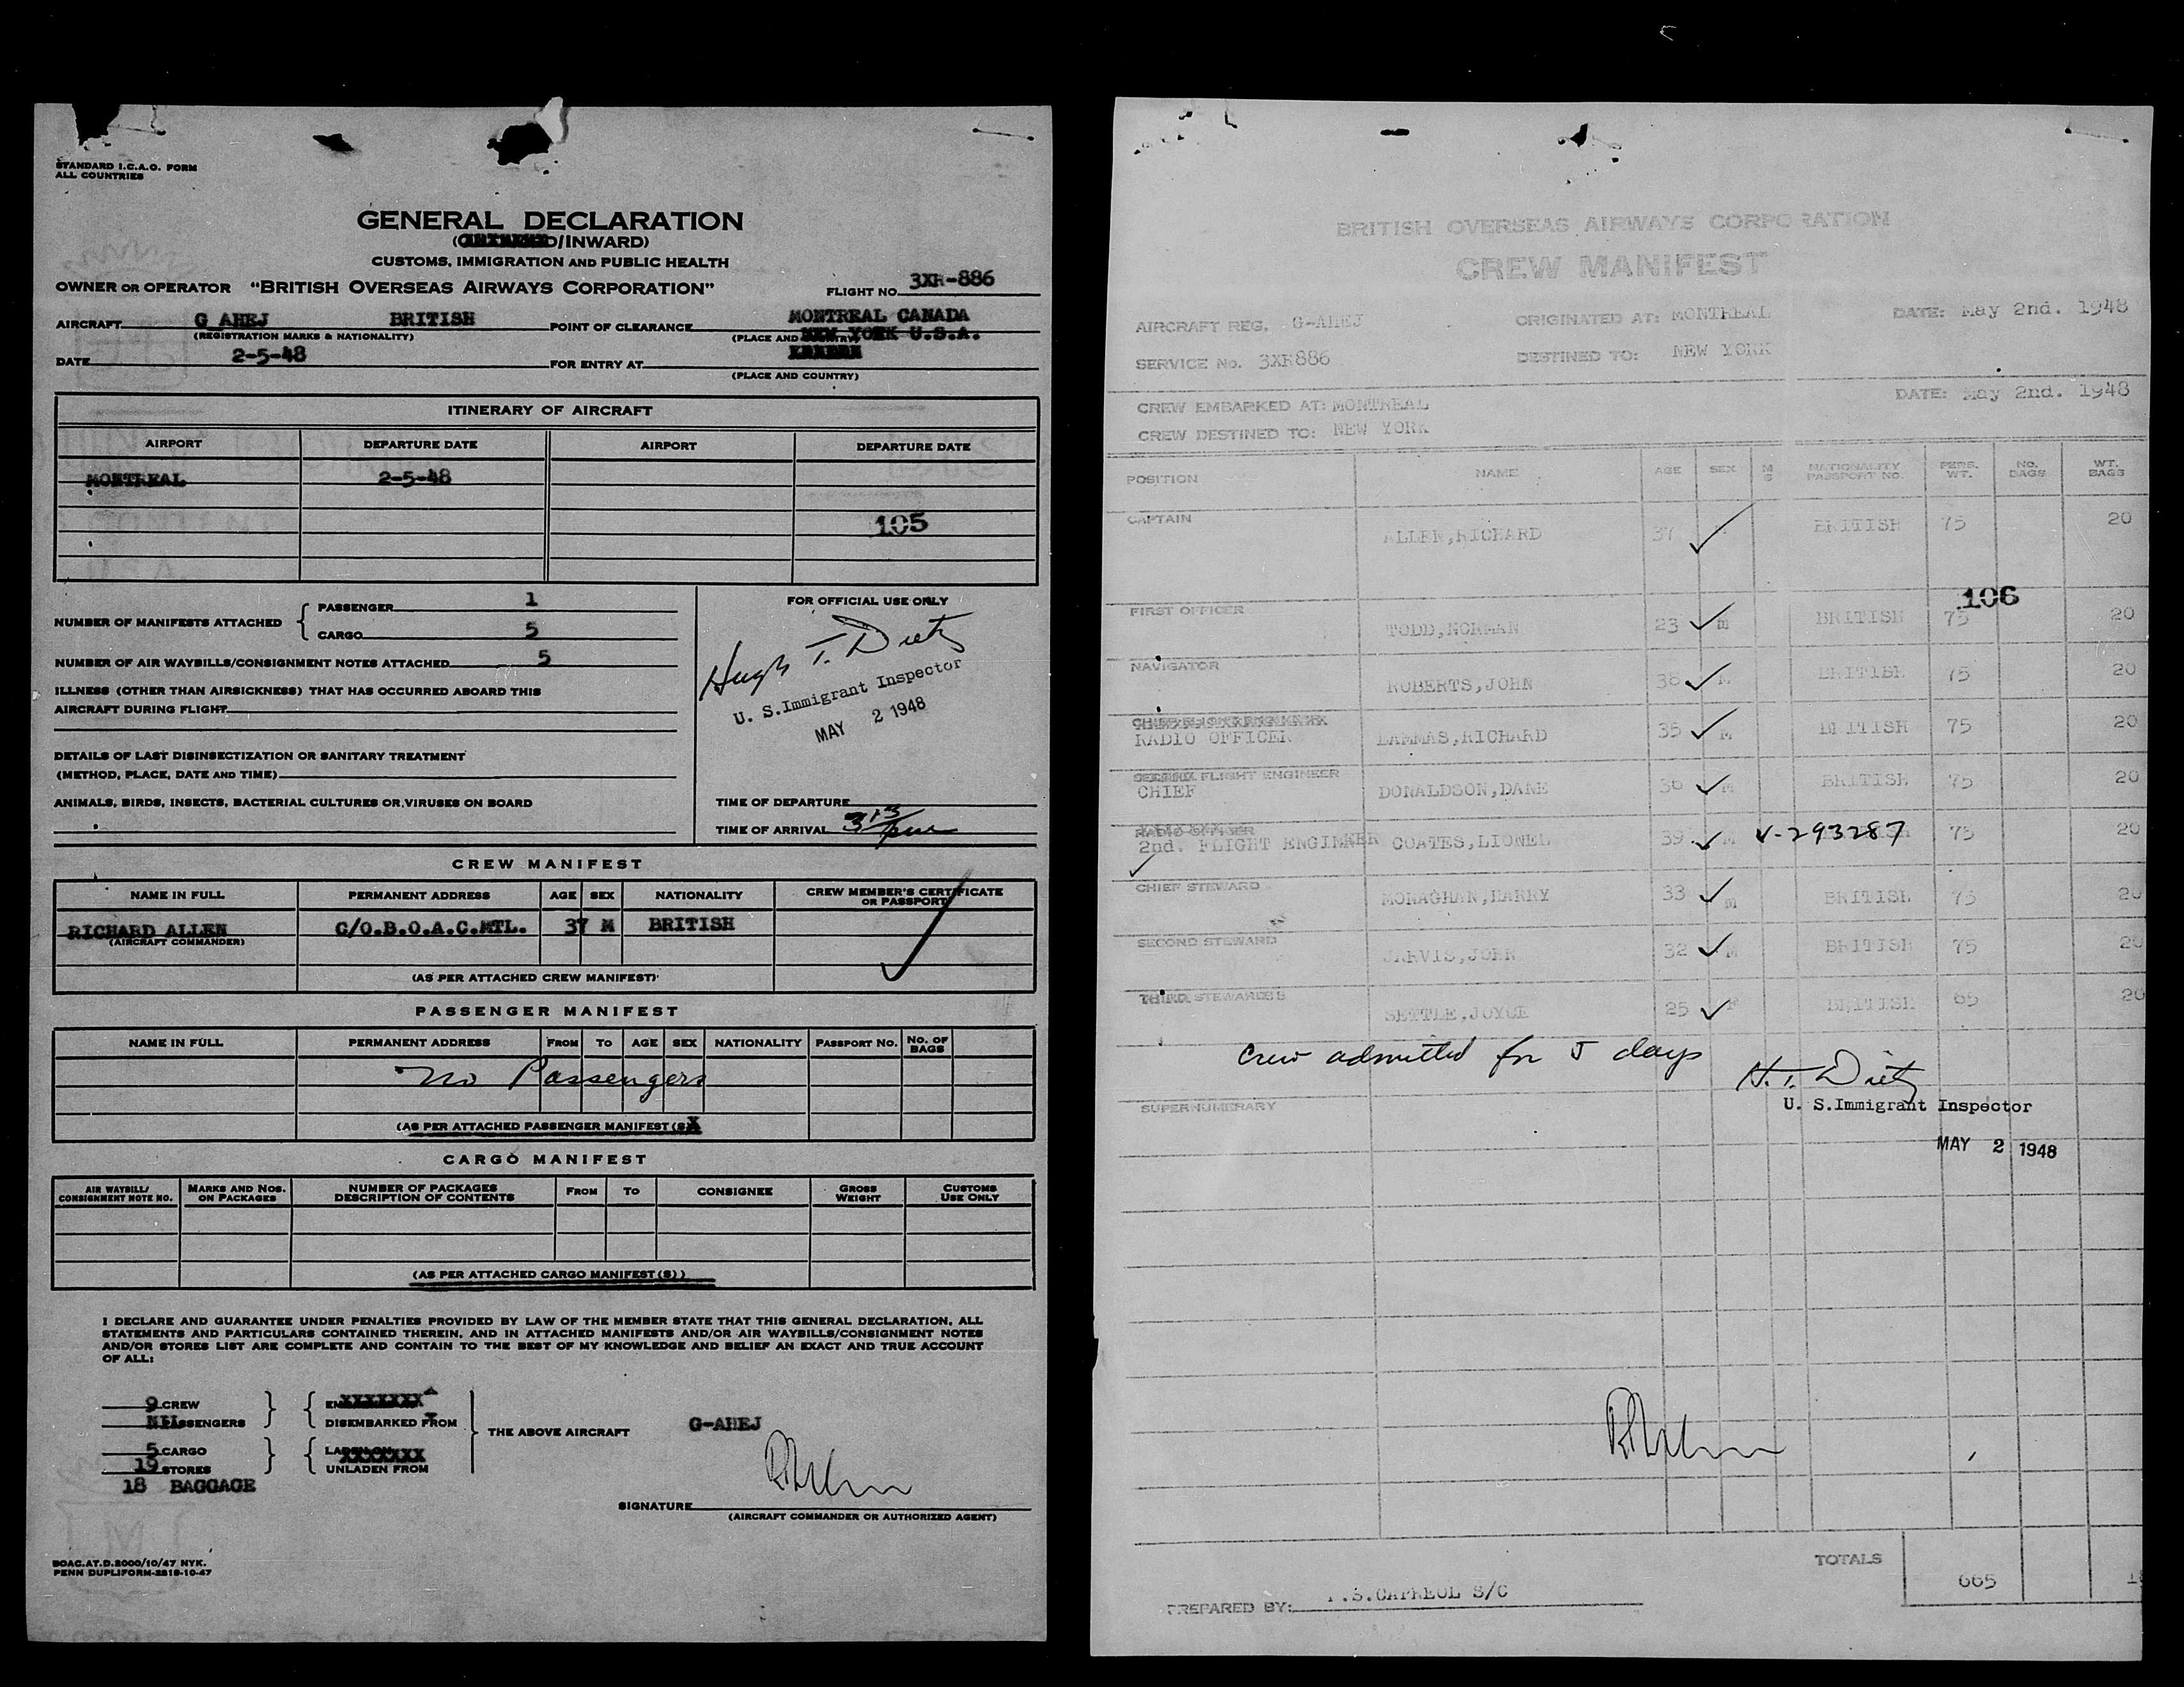 STANDARD I.C.A.O. FORM
ALL COUNTRIES
GENERAL DECLARATION
D/INWARD)
CUSTOMS, IMMIGRATION AND PUBLIC HEALTH
OWNER OR OPERATOR "BRITISH OVERSEAS AIRWAYS CORPORATION"
FLIGHT NO. 3XR-886
AIRCRAFT G AHEJ BRITISH
(REGISTRATION MARKS & NATIONALITY)
POINT OF CLEARANCE MONTREAL CANADA
(PLACE AND
NEW YORK U.S.A.
DATE 2-5-48
FOR ENTRY AT
(PLACE AND COUNTRY)
ITINERARY OF AIRCRAFT
AIRPORT DEPARTURE DATE AIRPORT DEPARTURE DATE
MONTREAL 2-5-48
105
NUMBER OF MANIFESTS ATTACHED
PASSENGER 1
CARGO 5
NUMBER OF AIR WAYBILLS/CONSIGNMENT NOTES ATTACHED 5
ILLNESS (OTHER THAN AIRSICKNESS) THAT HAS OCCURRED ABOARD THIS
AIRCRAFT DURING FLIGHT
DETAILS OF LAST DISINSECTIZATION OR SANITARY TREATMENT
(METHOD, PLACE, DATE AND TIME)
ANIMALS, BIRDS, INSECTS, BACTERIAL CULTURES OR VIRUSES ON BOARD
FOR OFFICIAL USE ONLY
Hugh T. Dietz
U. S. Immigrant Inspector
MAY 2 1948
TIME OF DEPARTURE
TIME OF ARRIVAL 3 13 pm
CREW MANIFEST
NAME IN FULL PERMANENT ADDRESS AGE SEX NATIONALITY CREW MEMBER'S CERTIFICATE OR PASSPORT
RICHARD ALLEN C/O.B.O.A.C.MTL. 37 M BRITISH
(AIRCRAFT COMMANDER)
(AS PER ATTACHED CREW MANIFEST)
PASSENGER MANIFEST
NAME IN FULL PERMANENT ADDRESS FROM TO AGE SEX NATIONALITY PASSPORT NO. NO. OF BAGS
No Passengers
(AS PER ATTACHED PASSENGER MANIFEST (S)
CARGO MANIFEST
AIR WAYBILL/ CONSIGNMENT NOTE NO. MARKS AND NOS. ON PACKAGES NUMBER OF PACKAGES DESCRIPTION OF CONTENTS FROM TO CONSIGNEE GROSS WEIGHT CUSTOMS USE ONLY
(AS PER ATTACHED CARGO MANIFEST (S))
I DECLARE AND GUARANTEE UNDER PENALTIES PROVIDED BY LAW OF THE MEMBER STATE THAT THIS GENERAL DECLARATION, ALL
STATEMENTS AND PARTICULARS CONTAINED THEREIN, AND IN ATTACHED MANIFESTS AND/OR AIR WAYBILLS/CONSIGNMENT NOTES
AND/OR STORES LIST ARE COMPLETE AND CONTAIN TO THE BEST OF MY KNOWLEDGE AND BELIEF AN EXACT AND TRUE ACCOUNT
OF ALL:
9 CREW
NIL PASSENGERS
DISEMBARKED FROM
5 CARGO
15 STORES
UNLADEN FROM
18 BAGGAGE
THE ABOVE AIRCRAFT G-AHEJ
SIGNATURE
(AIRCRAFT COMMANDER OR AUTHORIZED AGENT)
BOAC.AT.D.2000/10/47 NYK.
PENN DUPLIFORM-2818-10-47
BRITISH OVERSEAS AIRWAYS CORPORATION
CREW MANIFEST
AIRCRAFT REG. G-AHEJ ORIGINATED AT: MONTREAL DATE: May 2nd. 1948
SERVICE No. 3XR886 DESTINED TO: NEW YORK
CREW EMBARKED AT: MONTREAL DATE: May 2nd. 1948
CREW DESTINED TO: NEW YORK
POSITION NAME AGE SEX M S NATIONALITY PASSPORT NO. PERS. WT. NO. BAGS WT. BAGS
CAPTAIN ALLEN,RICHARD 37 BRITISH 75 20
106
FIRST OFFICER TODD,NORMAN 23 M BRITISH 75 20
NAVIGATOR ROBERTS,JOHN 38 M BRITISH 75 20
RADIO OFFICER LAMMAS,RICHARD 35 M BRITISH 75 20
FLIGHT ENGINEER
CHIEF DONALDSON,DANE 36 M BRITISH 75 20
RADIO OFFICER
2nd. FLIGHT ENGINEER COATES,LIONEL 39 M V-293287 75 20
CHIEF STEWARD MONAGHAN,HARRY 33 M BRITISH 75 20
SECOND STEWARD JARVIS,JOHN 32 M BRITISH 75 20
THIRD STEWARDESS SETTLE,JOYCE 25 F BRITISH 65 20
Crew admitted for 5 days
H. T. Dietz
U. S. Immigrant Inspector
SUPERNUMERARY
MAY 2 1948
TOTALS 665
PREPARED BY: .S.CAPREOL S/C